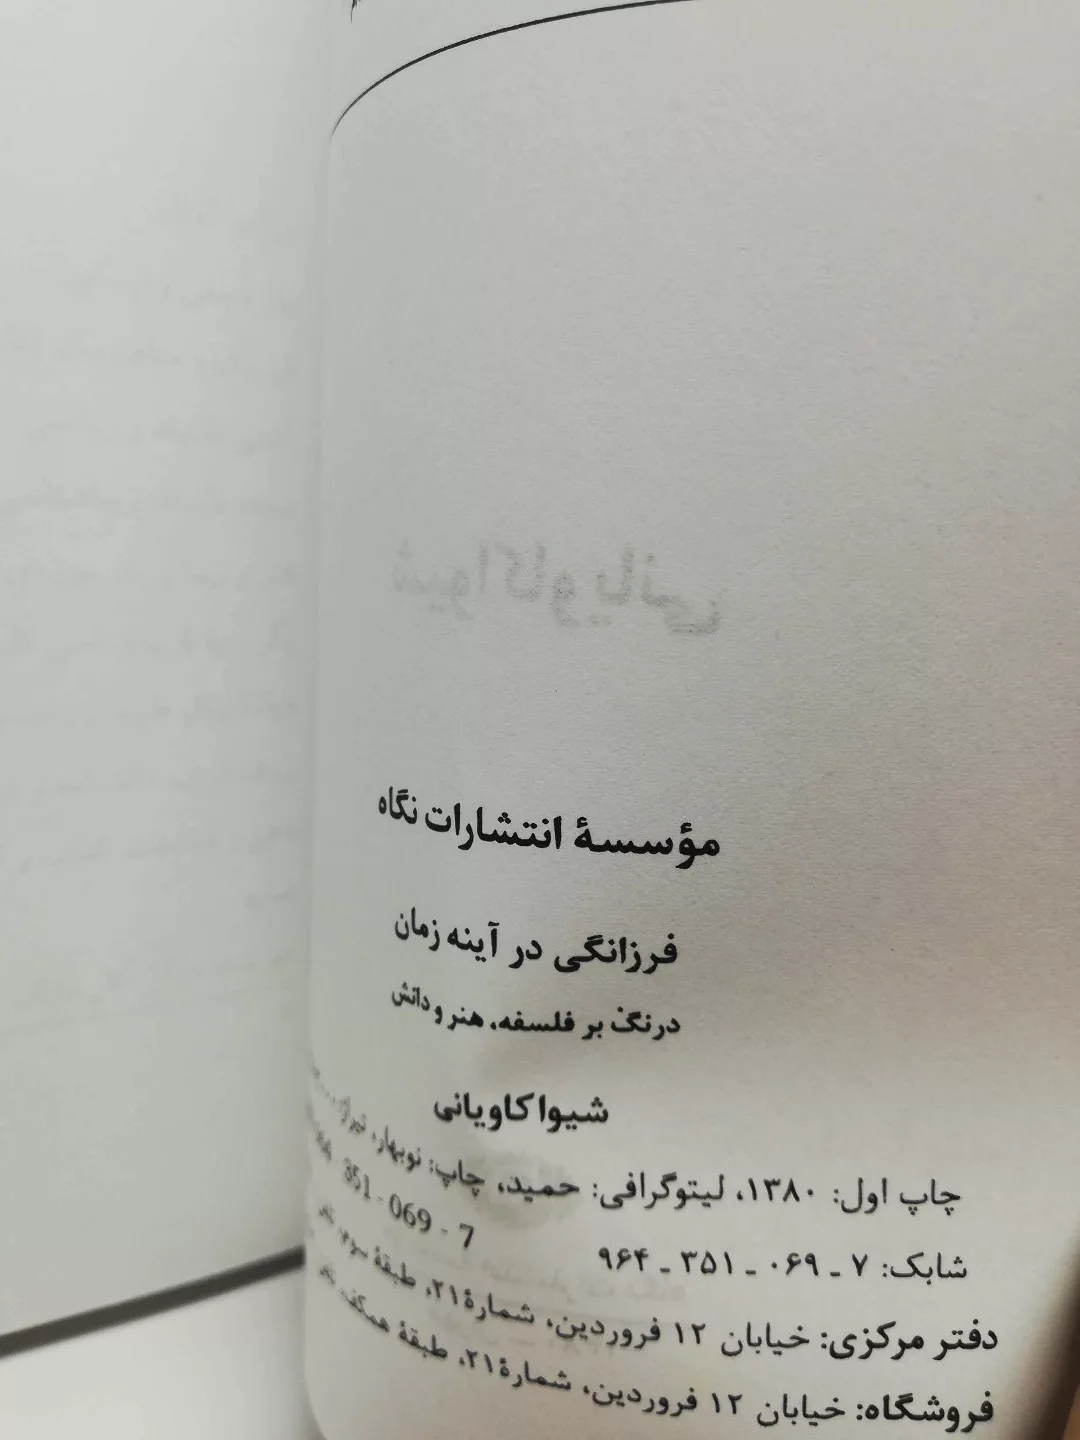 مؤسسهٔ انتشارات نگاه
فرزانگی در آینه زمان
درنگ بر فلسفه، هنر و دانش
شیوا کاویانی
چاپ اول: ۱۳۸۰، لیتوگرافی: حمید، چاپ: نوبهار، تیراژ:
شابک: ۷ ـ ۰۶۹ ـ ۳۵۱ ـ ۹۶۴ 351 - 069 - 7
دفتر مرکزی: خیابان ۱۲ فروردین، شمارهٔ ۲۱، طبقهٔ سوم،
فروشگاه: خیابان ۱۲ فروردین، شمارهٔ ۲۱، طبقهٔ همکف،
شیوا کاویانی